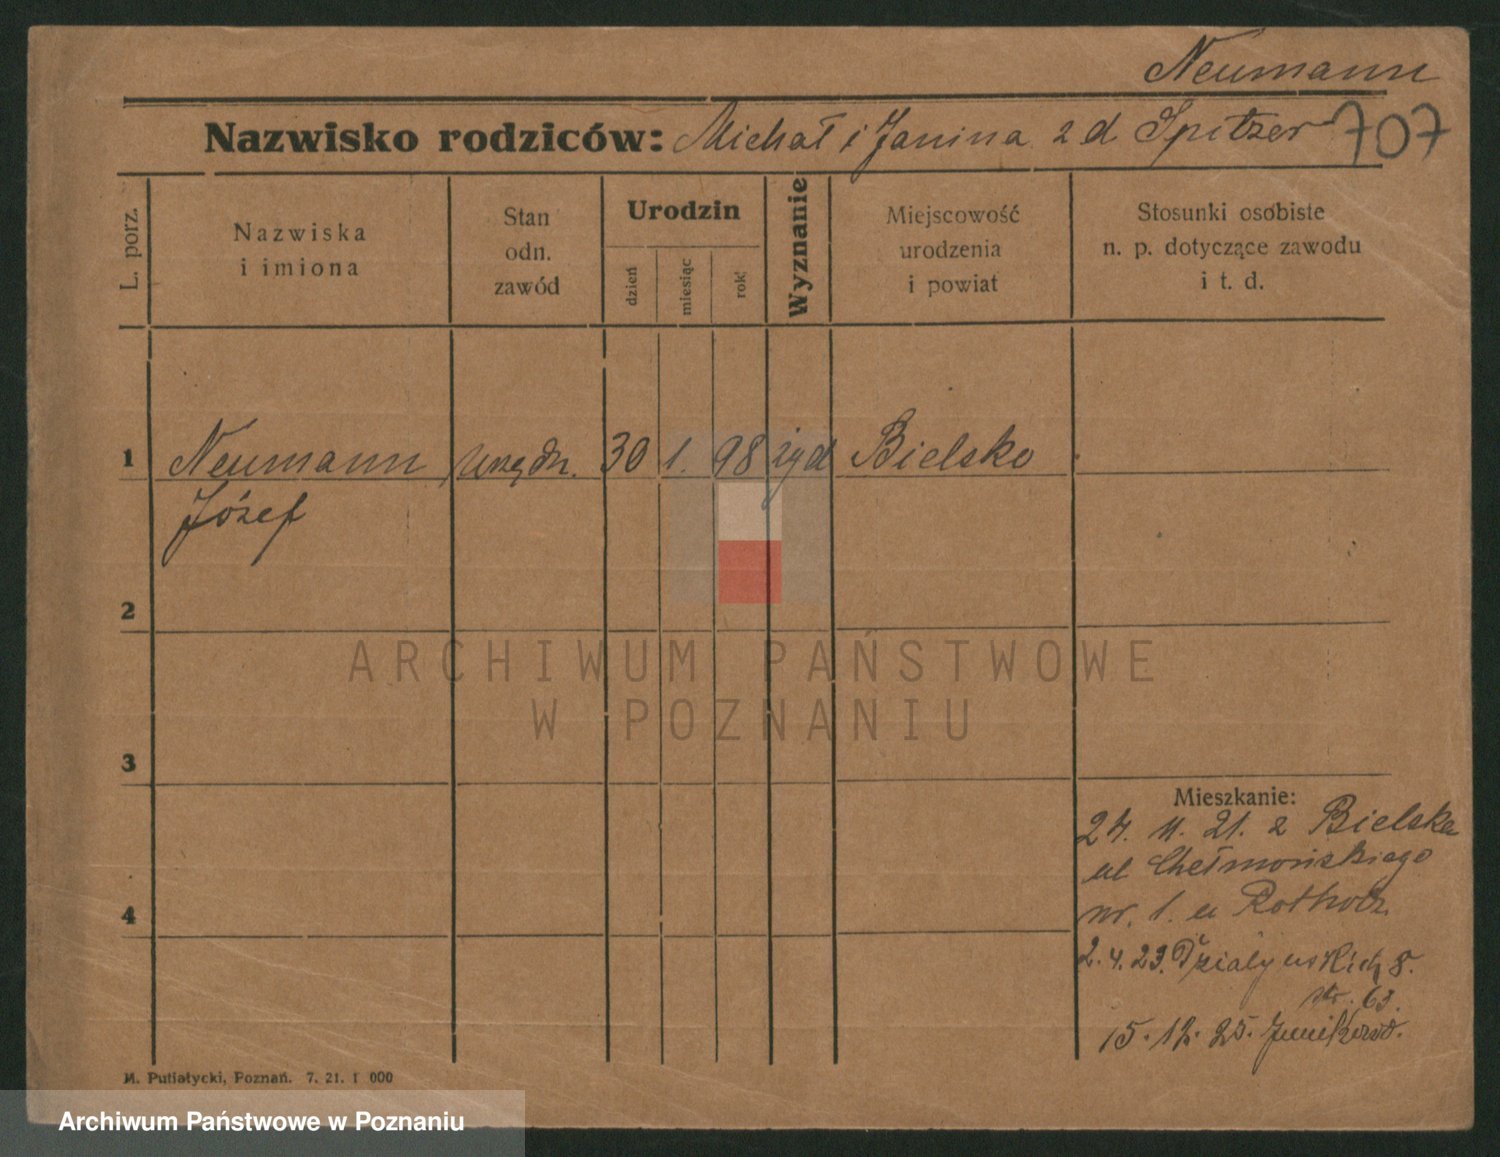 Neumann
Nazwisko rodziców: Michał i Janina z d Spitzer 707
L. porz.
Nazwiska
i imiona
Stan
odn.
zawód
Urodzin
dzień
miesiąc
rok
Wyznanie
Miejscowość
urodzenia
i powiat
Stosunki osobiste
n. p. dotyczące zawodu
i t. d.
1 Neumann urzędn. 30 1. 98 żyd Bielsko
Józef
2
ARCHIWUM PAŃSTWOWE
W POZNANIU
3
Mieszkanie:
24. 11. 21. z Bielska
ul Chełmońskiego
4
nr. 1. u Rotholz
2. 4. 23. Działyńskich 8.
str. 63.
15. 12. 25. Junikowo.
M. Putiatycki, Poznań. 7. 21. 1 000
Archiwum Państwowe w Poznaniu